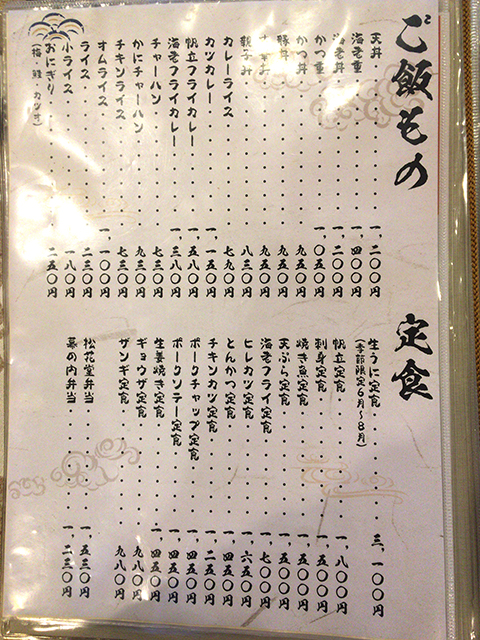 ご飯もの
天丼・・・・・・・一、二〇〇円
海老重・・・・・・一、四〇〇円
海老丼・・・・・・一、二〇〇円
かつ重・・・・・・一、〇五〇円
かつ丼・・・・・・九五〇円
豚丼・・・・・・・九五〇円
九五〇円
親子丼・・・・・・八三〇円
カレーライス・・・・七九〇円
カツカレー・・・・一、一五〇円
帆立フライカレー・・一、五八〇円
海老フライカレー・・一、三八〇円
チャーハン・・・・・七三〇円
かにチャーハン・・・九三〇円
チキンライス・・・・七三〇円
オムライス・・・・一、一〇〇円
ライス・・・・・・二三〇円
小ライス・・・・・一八〇円
おにぎり・・・・・二五〇円
(梅・鮭・カツオ)
定食
生うに定食・・・・三、一〇〇円
(季節限定6月〜8月)
帆立定食・・・・・一、八〇〇円
刺身定食・・・・・一、五〇〇円
焼き魚定食・・・・一、五〇〇円
天ぷら定食・・・・一、五〇〇円
海老フライ定食・・・一、七〇〇円
ヒレカツ定食・・・・一、六五〇円
とんかつ定食・・・・一、四五〇円
チキンカツ定食・・・一、二五〇円
ポークチャップ定食・・一、四五〇円
ポークソテー定食・・・一、四五〇円
生姜焼き定食・・・・一、四五〇円
ギョウザ定食・・・・九八〇円
ザンギ定食・・・・・九八〇円
松花堂弁当・・・・一、五三〇円
幕の内弁当・・・・一、二三〇円